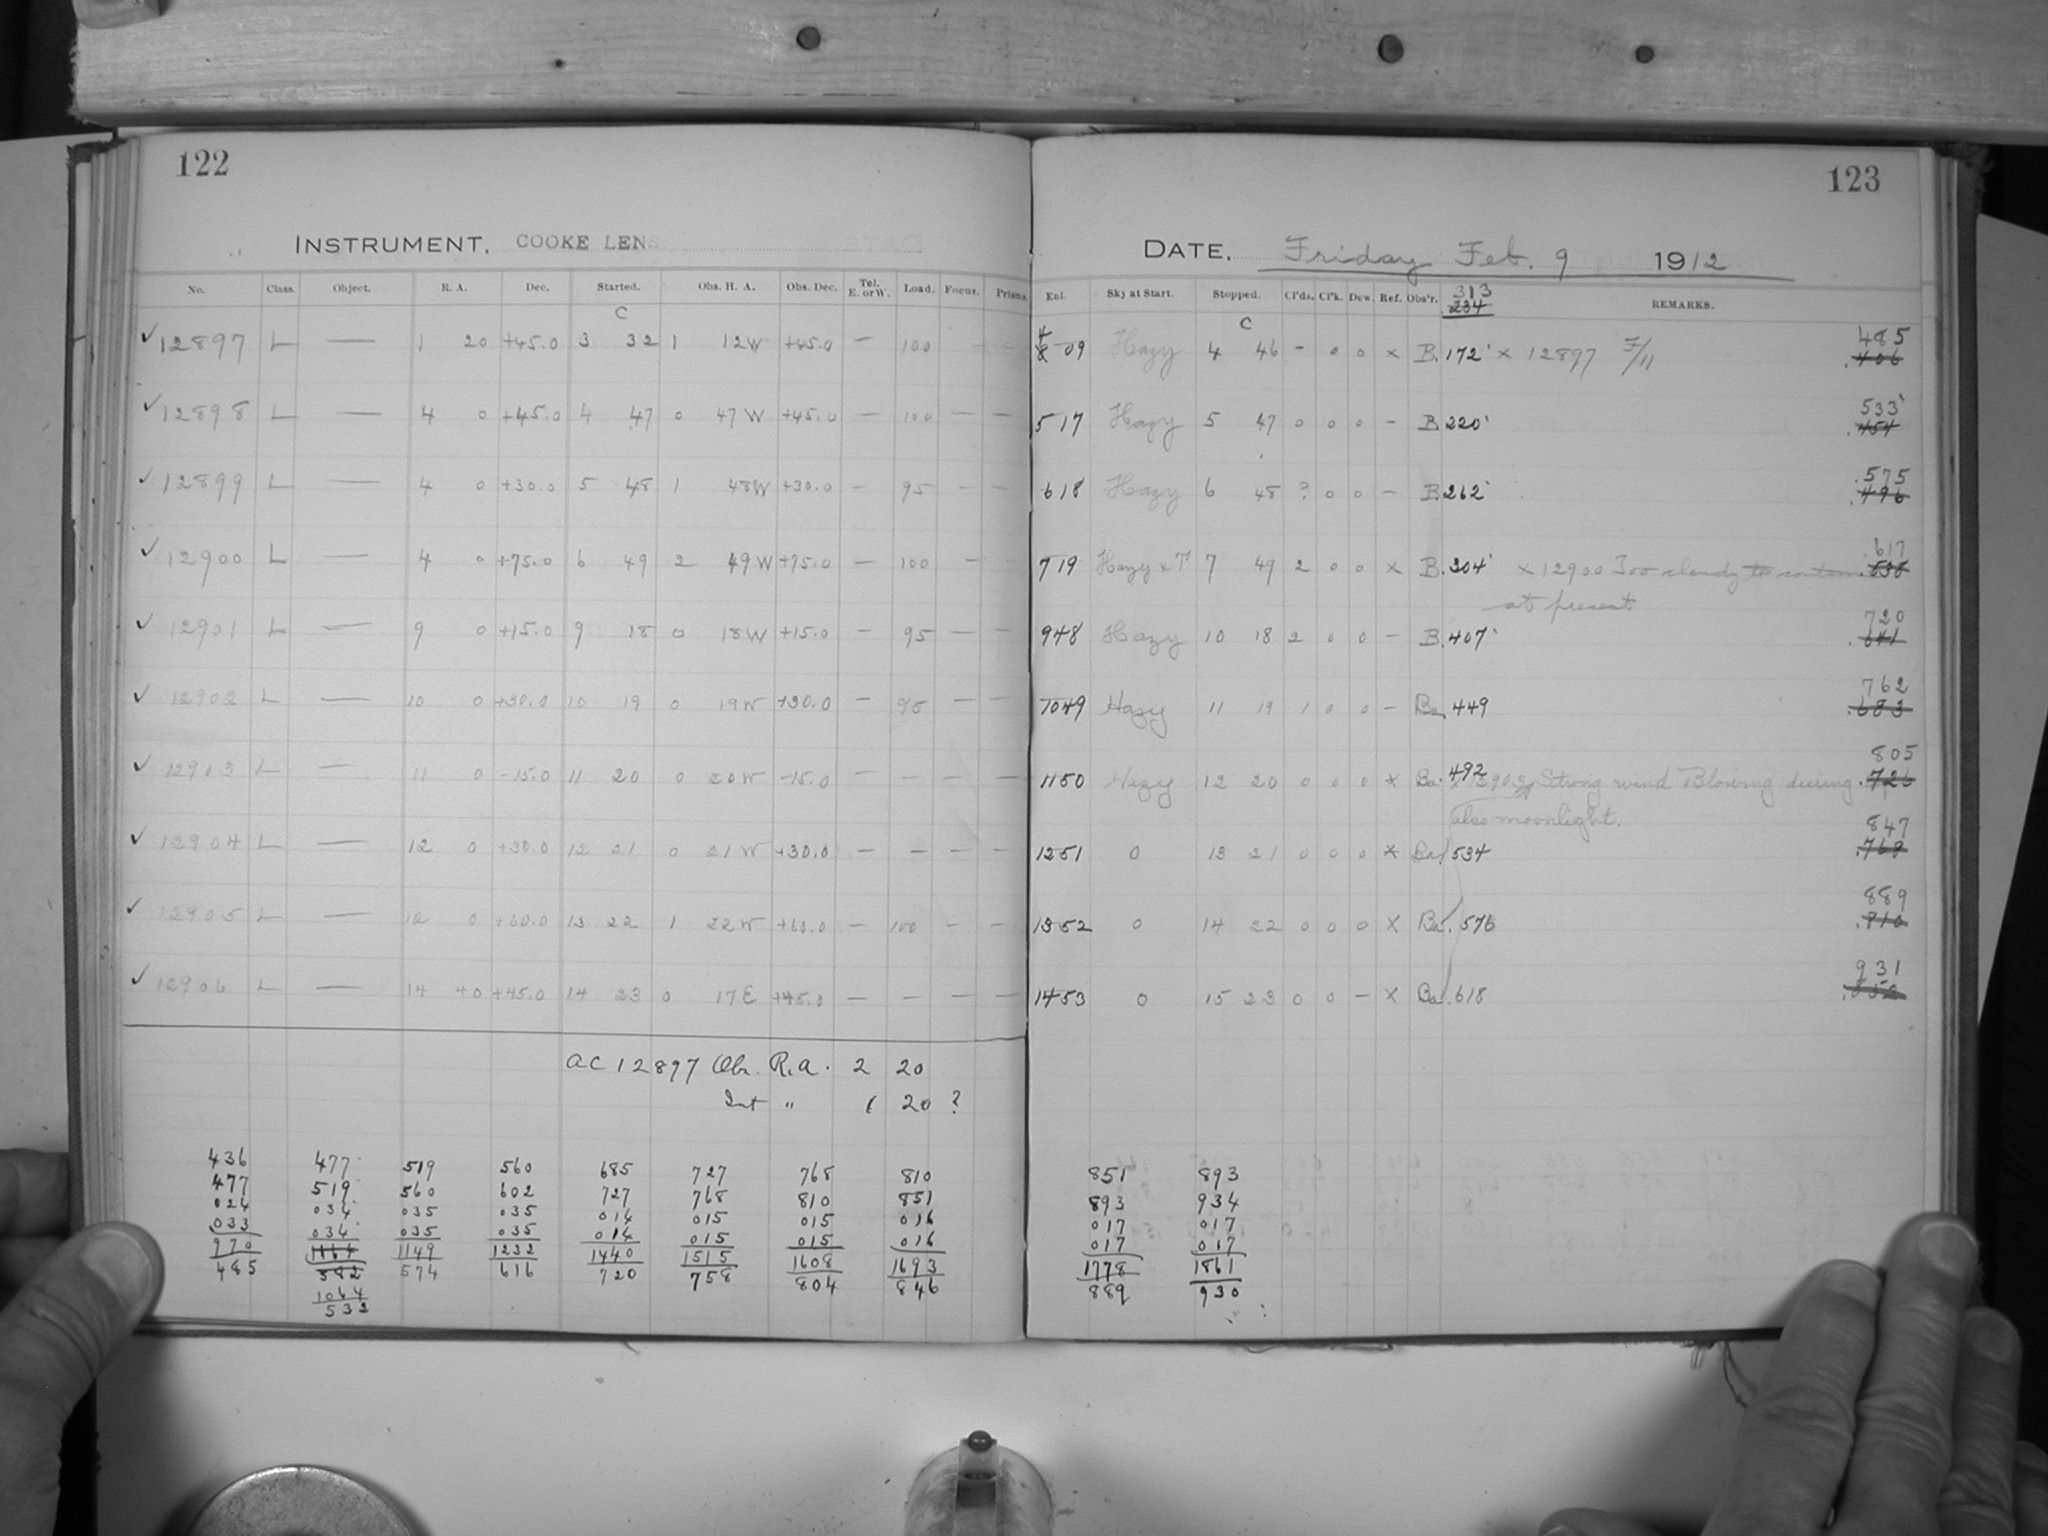 122
INSTRUMENT, COOKE LENS
No. Class. Object. R. A. Dec. Started. Obs. H. A. Obs. Dec. Tel. E. or W. Load. Focus. Prisms.
C
✓ 12897 L — 1 20 +45.0 3 32 1 12W +45.0 — 100 — —
✓ 12898 L — 4 0 +45.0 4 47 0 47W +45.0 — 100 — —
✓ 12899 L — 4 0 +30.0 5 48 1 48W +30.0 — 95 — —
✓ 12900 L — 4 0 +75.0 6 49 2 49W +75.0 — 100 — —
✓ 12901 L — 9 0 +15.0 9 18 0 18W +15.0 — 95 — —
✓ 12902 L — 10 0 +30.0 10 19 0 19W +30.0 — 95 — —
✓ 12903 L — 11 0 -15.0 11 20 0 20W -15.0 — — — —
✓ 12904 L — 12 0 +30.0 12 21 0 21W +30.0 — — — —
✓ 12905 L — 12 0 +60.0 13 22 1 22W +60.0 — 100 — —
✓ 12906 L — 14 40 +45.0 14 23 0 17E +45.0 — — — —
AC 12897 Obs. R.A. 2 20
Int " 1 20 ?
436 477 519 560 685 727 768 810
477 519 560 602 727 768 810 851
024 034 035 035 014 015 015 016
033 034 035 035 014 015 015 016
970 1164 1149 1232 1440 1515 1608 1693
485 582 574 616 720 758 804 846
1064
532
123
DATE, Friday Feb. 9 1912
Enl. Sky at Start. Stopped. Cl'ds. Cl'k. Dew. Ref. Obs'r. 313 REMARKS.
.234
C
4
8 09 Hazy 4 46 - 0 0 x B. 172' x 12897 F/11 485
.406
5 17 Hazy 5 47 0 0 0 - B. 220' 533'
.454
6 18 Hazy 6 48 ? 0 0 - B. 262' .575
.496
7 19 Hazy x 7 49 2 0 0 x B. 304' x 12900 Too cloudy to .617
.538
at present
9 48 Hazy 10 18 2 0 0 - B. 407' 720
.641
1049 Hazy 11 19 1 0 0 - Ba. 449 762
.683
1150 Hazy 12 20 0 0 0 x Ba. 492 12903 Strong wind Blowing during 805
.726
also moonlight.
1251 0 13 21 0 0 0 x Ba. 534 847
.768
1352 0 14 22 0 0 0 x Ba. 576 889
.810
1453 0 15 23 0 0 — x Ba. 618 931
.852
851 893
893 934
017 017
017 017
1778 1861
889 930